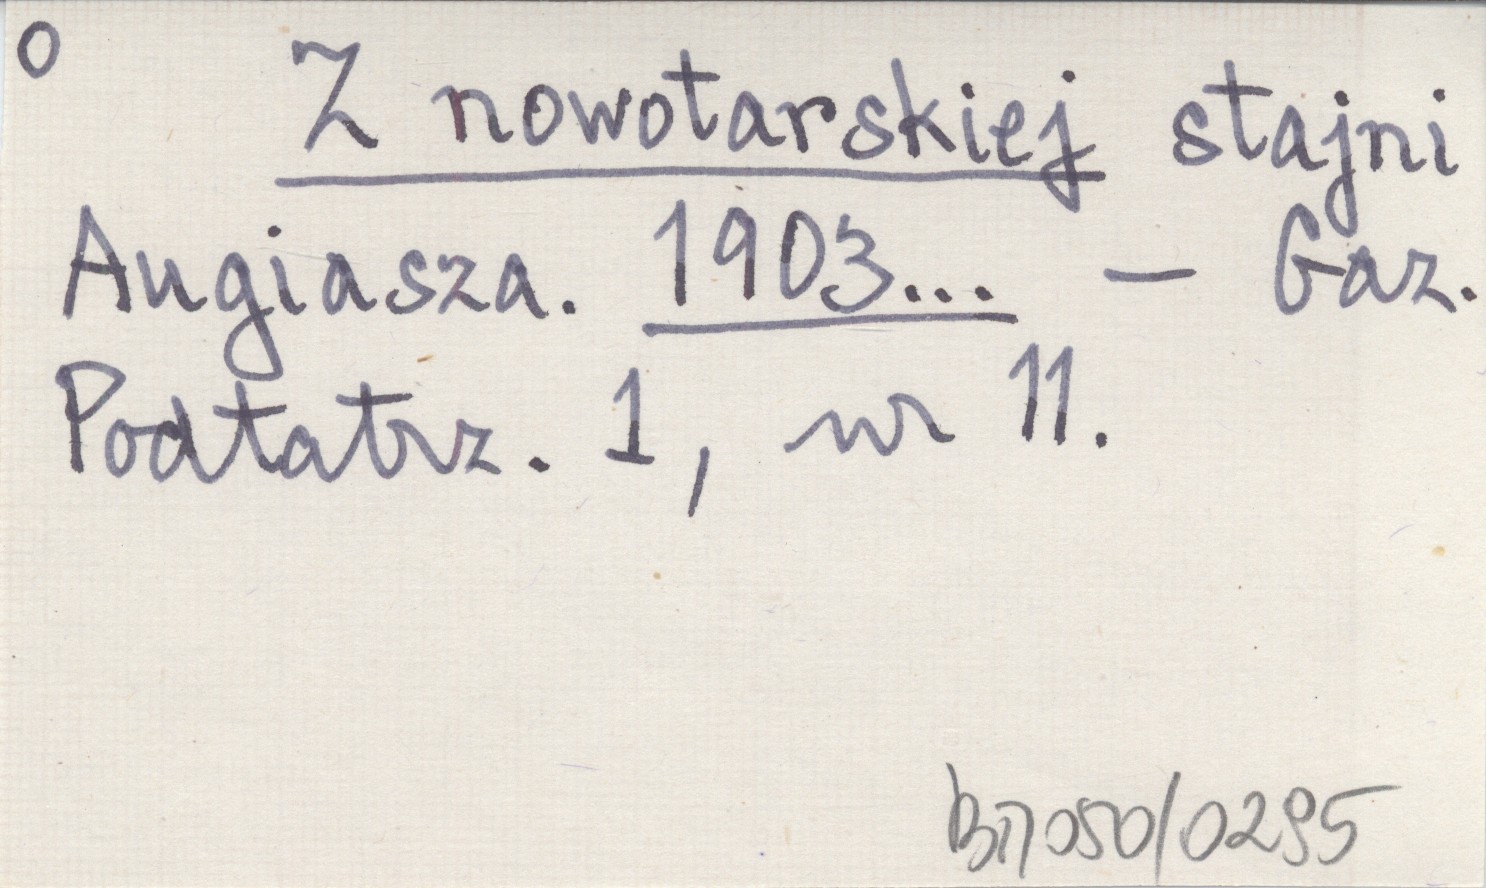 O
Z nowotarskiej stajni
Augiasza. 1903... — Gaz.
Podtatrz. 1, nr 11.
BN050/0295